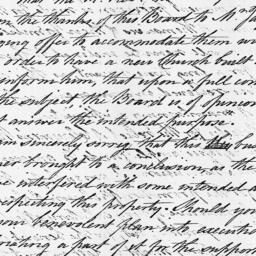 the thanks of this Board to M.
ing offer to accommodate them w
order to have a new Church built
inform him, that upon a full con
the subject, the Board is of opinion
t answer the intended purpose.
am sincerely sorry that this bus
ner brought to a conclusion, as the
interfered with some intended a
respecting this property. Should you
your benevolent plan into executio
a part of it for the support